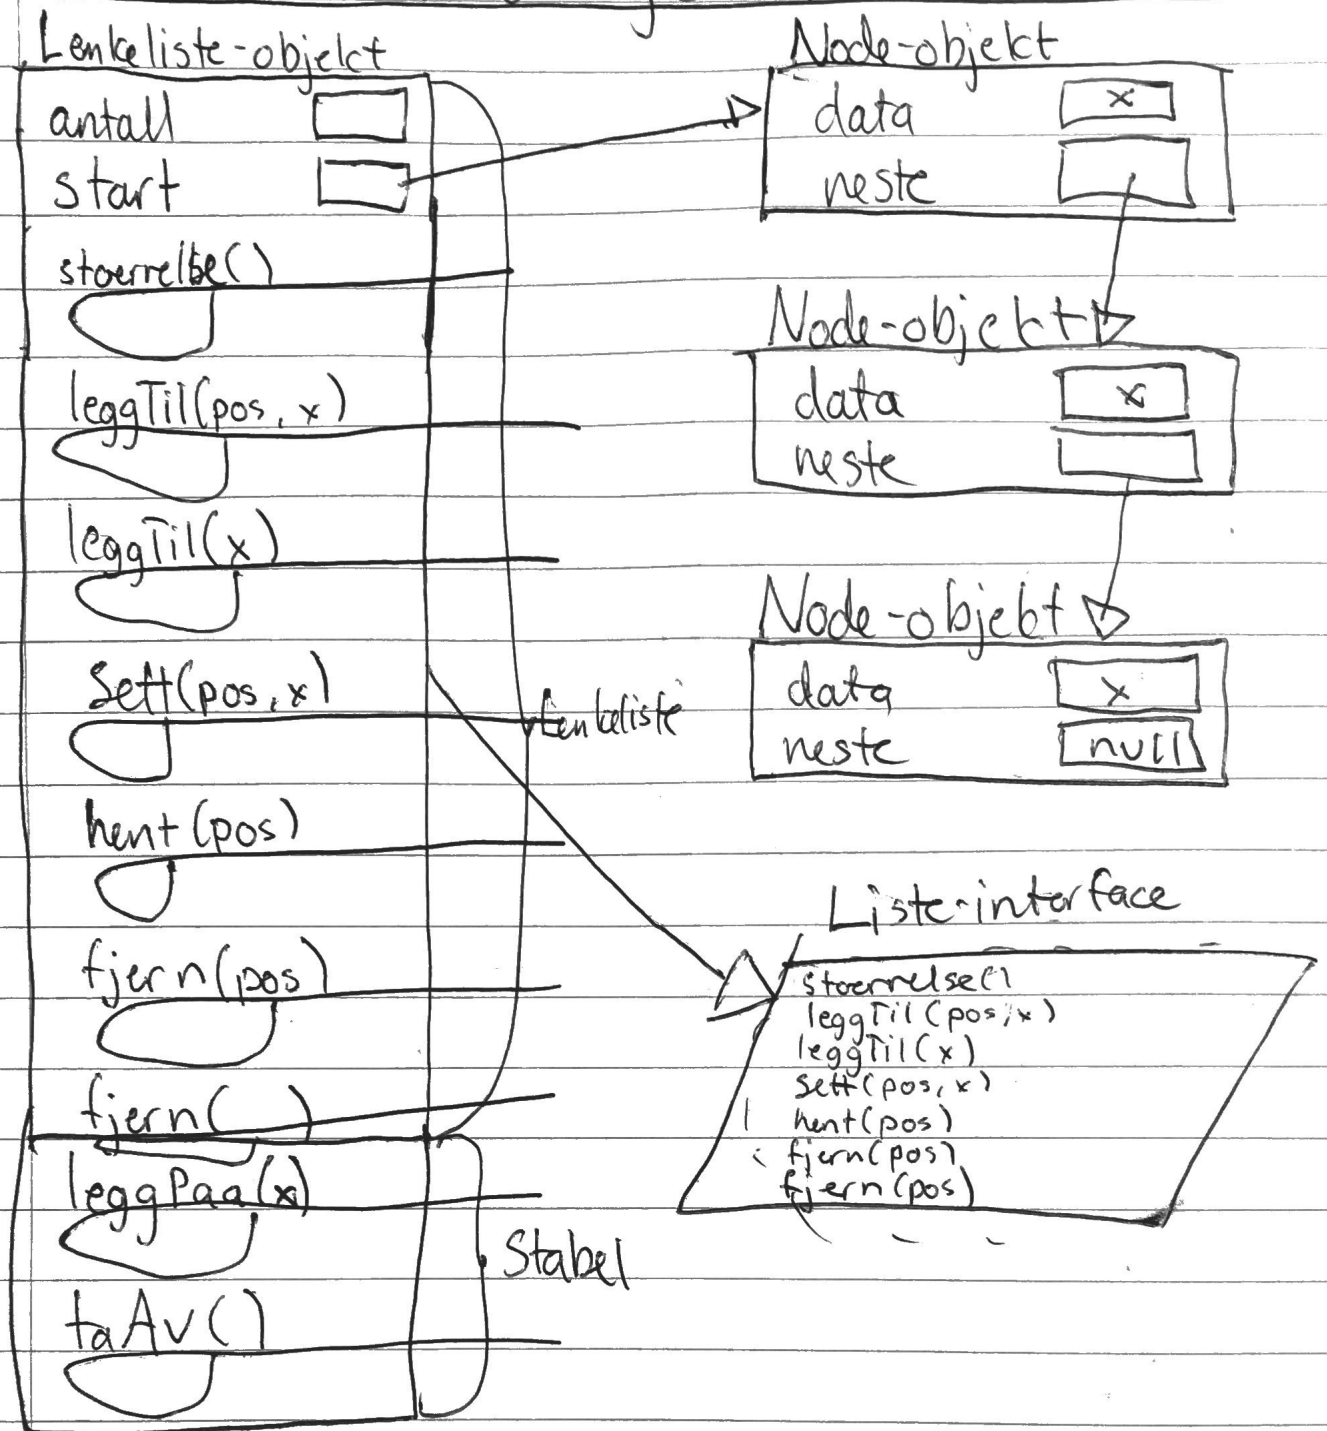 Lenkeliste-objekt
antall
start
stoerrelse()
leggTil(pos, x)
leggTil(x)
Sett(pos, x)
hent(pos)
fjern(pos)
fjern( )
leggPaa(x)
taAv()
Lenkeliste
Stabel
Node-objekt
data x
neste
Node-objekt
data x
neste
Node-objekt
data x
neste null
Liste-interface
stoerrelse()
leggTil(pos, x)
leggTil(x)
sett(pos, x)
hent(pos)
fjern(pos)
fjern(pos)